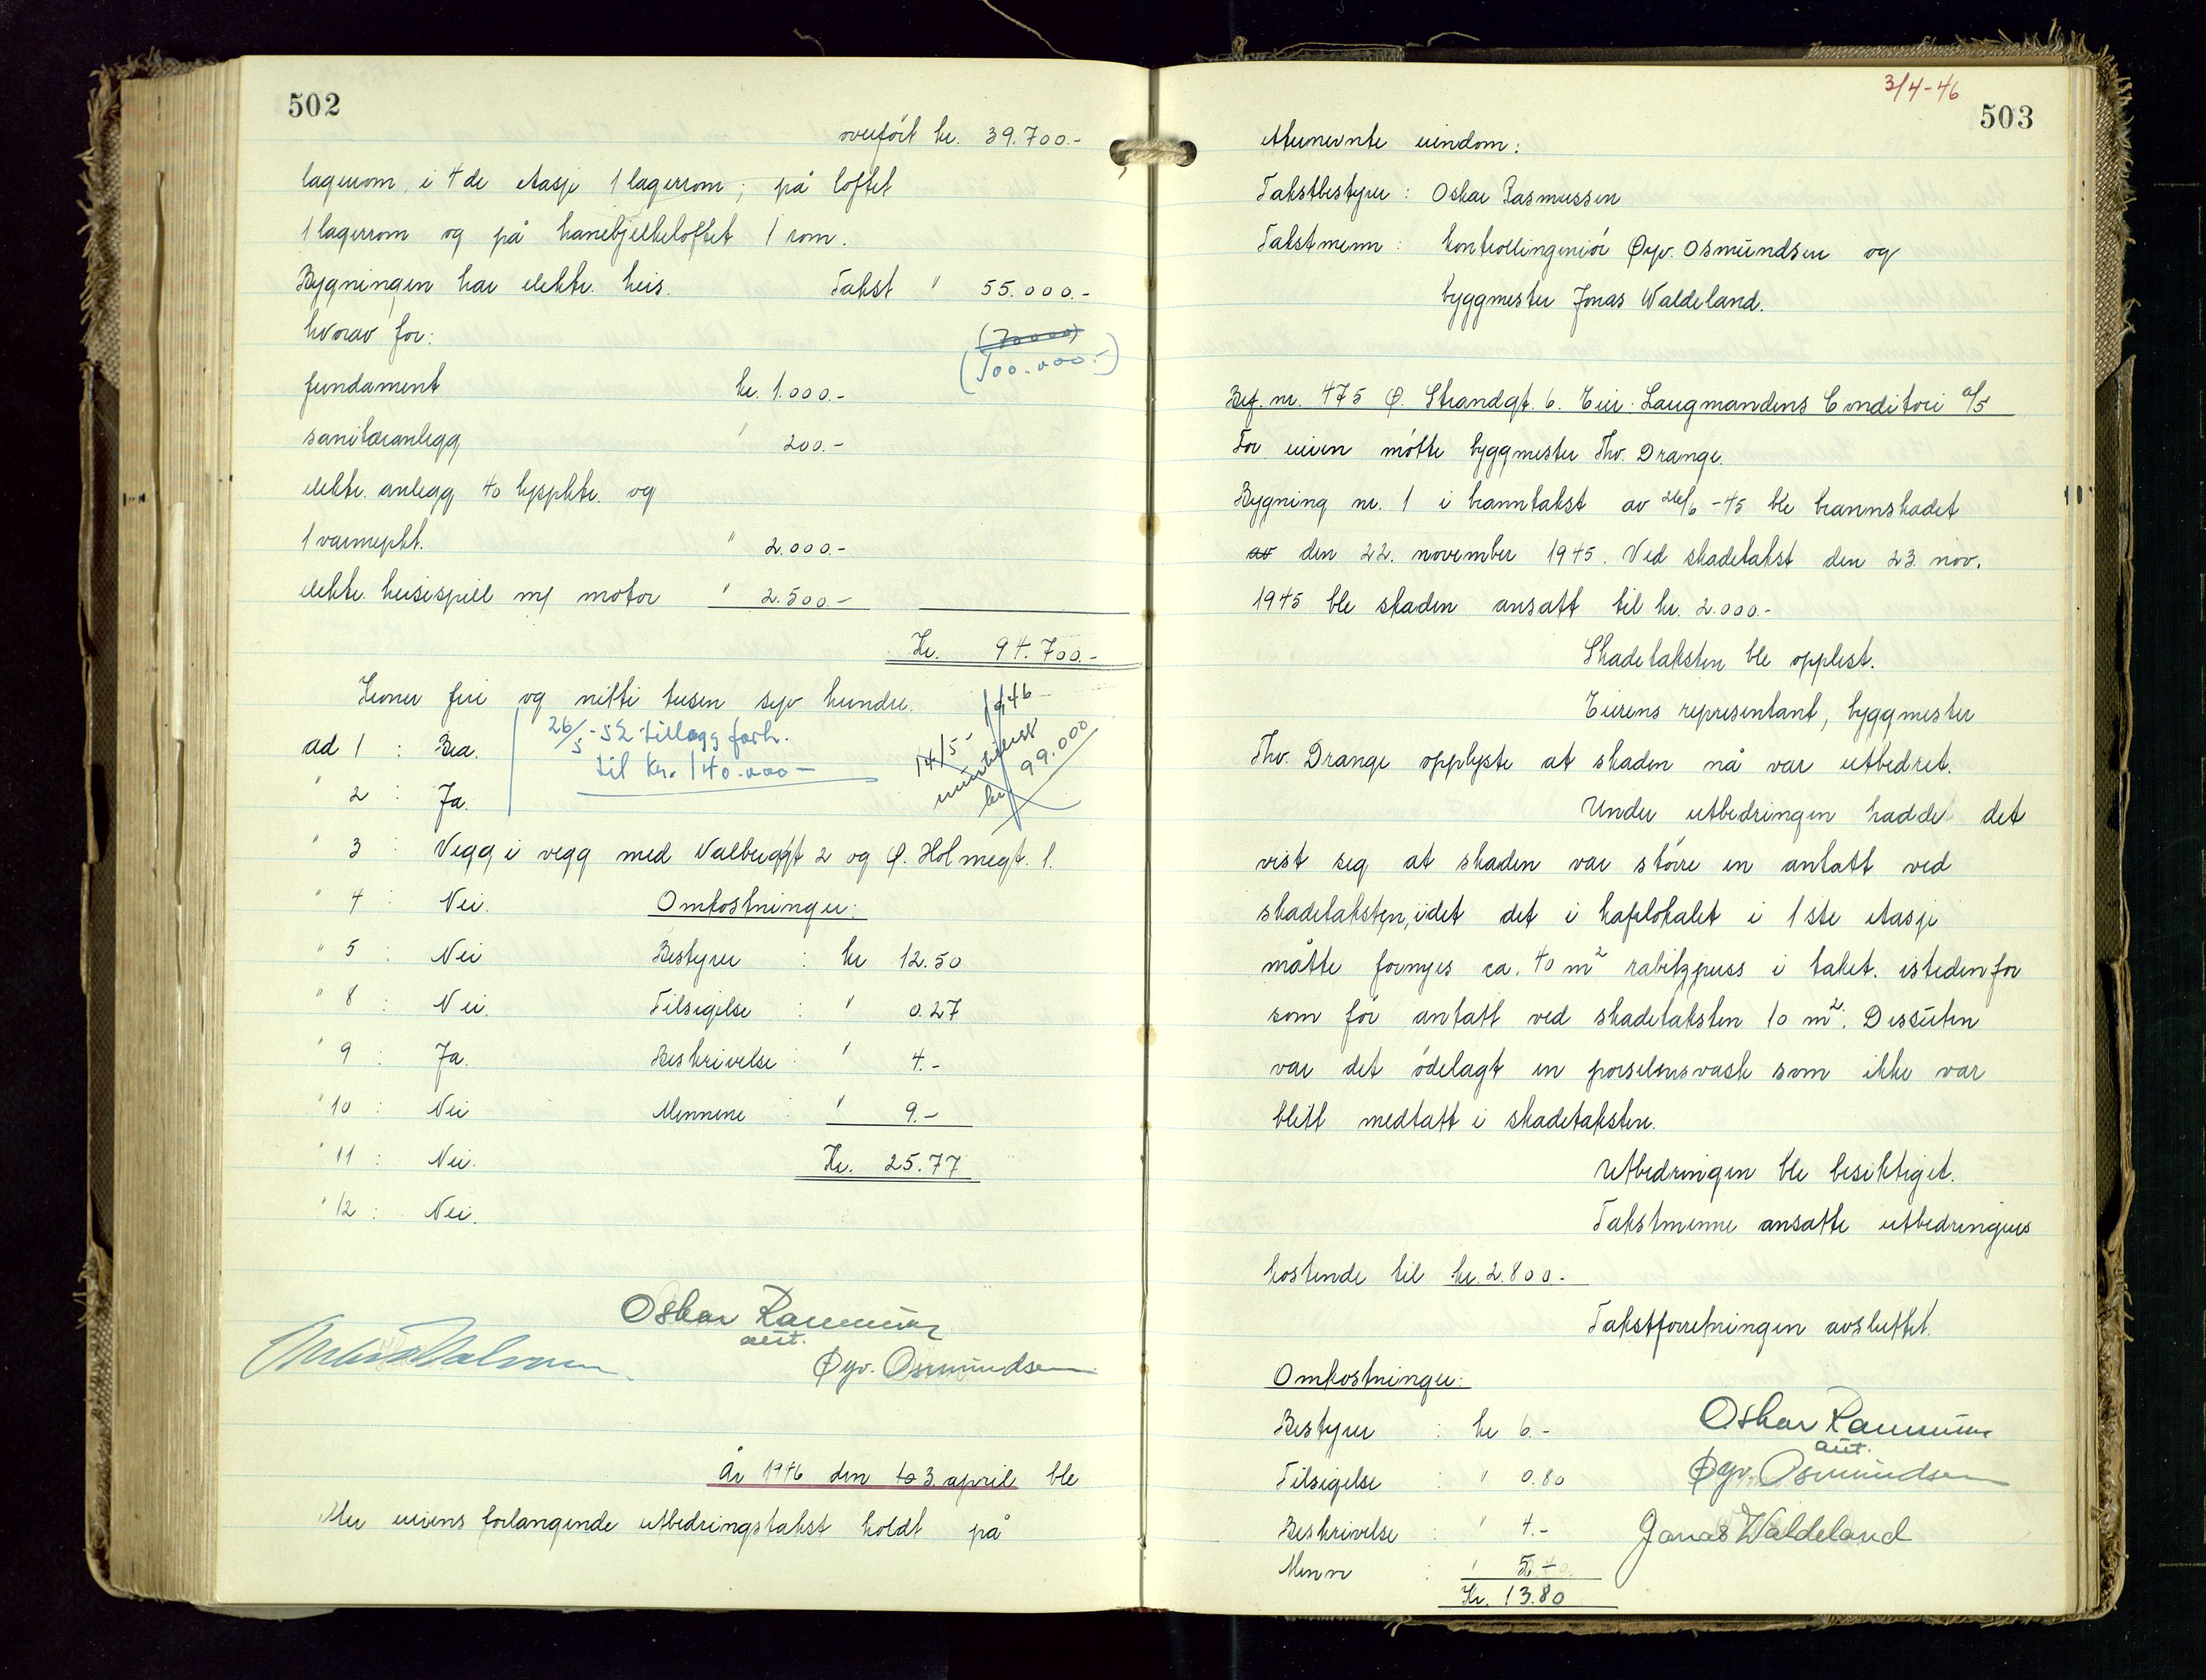 502
overført kr. 39.700.-
lagerrom, i 4de etasje 1 lagerrom; på loftet
1 lagerrom og på hanebjelkeloftet 1 rom.
Bygningen har elektr. heis. Takst " 55.000.-
hvorav for: (70000)
(100.000.-)
fundament kr. 1.000.-
sanitæranlegg " 200.-
elektr. anlegg 40 lyspktr. og
1 varmepkt. " 2.000.-
elektr. heisespill m/ motor " 2.500.-
Kr. 94.700.-
Kroner fire og nitti tusen syv hundre.
ad 1 : Bra. 26/5-52 tillegg forh.
til kr. 140.000-
14/5- 1946-
kr 99.000
" 2 : Ja.
" 3 : Vegg i vegg med Valberggt 2 og Ø. Holmegt. 1.
" 4 : Nei. Omkostninger:
" 5 : Nei Bestyrer : kr 12.50
" 8 : Nei. Tilsigelse : " 0.27
" 9 : Ja. Beskrivelse : " 4.-
" 10 : Nei Mennene : " 9.-
" 11 : Nei. Kr. 25.77
" 12 : Nei.
Oskar Rasmussen
aut.
Øyv. Osmundsen
År 1946 den to 3. april ble
etter eierens forlangende utbedringstakst holdt på
3/4-46
503
etternevnte eiendom:
Takstbestyrer : Oskar Rasmussen
Takstmenn : kontrollingeniør Øyv. Osmundsen og
byggmester Jonas Waldeland.
Brf. nr. 475 Ø. Strandgt. 6. Eier: Laugmandens Conditori a/s
For eieren møtte byggmester Thv. Drange.
Bygning nr. 1 i branntakst av 26/6-45 ble brannskadet
av den 22. november 1945. Ved skadetakst den 23. nov.
1945 ble skaden ansatt til kr. 2.000.-
Skadetaksten ble opplest.
Eierens representant, byggmester
Thv. Drange opplyste at skaden nå var utbedret.
Under utbedringen hadde det
vist seg at skaden var større en antatt ved
skadetaksten, idet det i kafelokalet i 1ste etasje
måtte fornyes ca. 40 m² rabitzpuss i taket. istedenfor
som før antatt ved skadetaksten 10 m². Dessuten
var det ødelagt en porselensvask som ikke var
blitt medtatt i skadetaksten.
Utbedringen ble besiktiget.
Takstmenne ansatte utbedringens
kostende til kr. 2.800.-
Takstforretningen avsluttet.
Omkostninger:
Bestyrer : kr 6.-
Tilsigelse : " 0.80
Beskrivelse : " 4.-
Menn : "
Kr. 13.80
Oskar Rasmussen
aut.
Øyv. Osmundsen
Jonas Waldeland